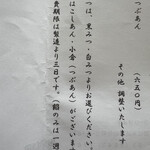 つぶあん （六五〇円）
その他 調整いたします
つは、黒みつ・白みつよりお選びください。
はこしあん・小倉（つぶあん）がございま
費期限は製造より三日です。（餡のみは一週